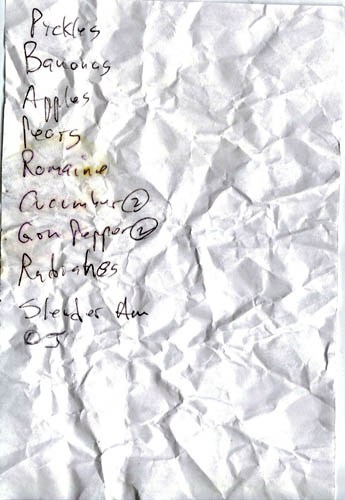 Pickles
Bananas
Apples
Pears
Romaine
Cucumber 2
Grn Pepper 2
Radishes
Slender
OJ